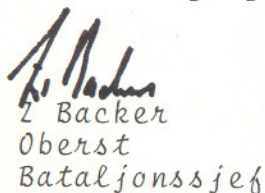 Z Backer
Oberst
Bataljonssjef